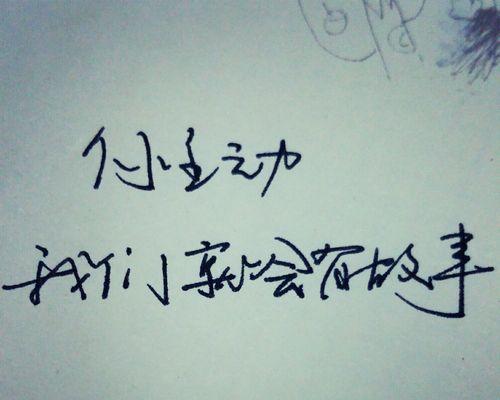 你主动
我们就会有故事